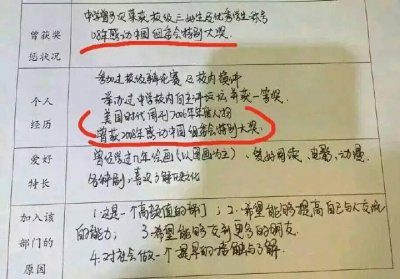 曾获奖
惩状况
中学曾多次荣获校级三好生及优秀学生称号
08年感动中国组委会特别大奖
个人
经历
参加过校级辩论赛及校内演讲
举办过中学校内自主评 并获一等奖
美国时代周刊2006年年度人物
曾获2008年感动中国组委会特别大奖
爱好
特长
曾经学过几年绘画(以国画为主)、 阅读、电影、动漫、
喜欢了解
加入该
部门的
原因
1.这是一个高颜值的部门; 2.希望能够提高自己与人交流
的能力; 3.希望能够交到更多的朋友.
4.对社会做一个提早的接触与了解.